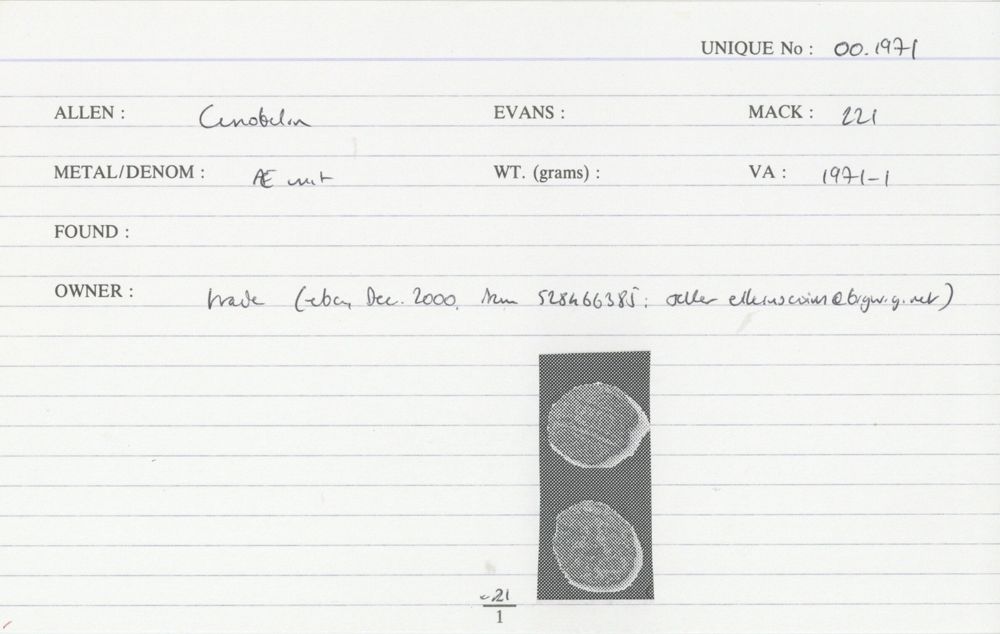 UNIQUE No : 00.1971
ALLEN : Cunobelin EVANS : MACK : 221
METAL/DENOM : Æ unit WT. (grams) : VA : 1971-1
FOUND :
OWNER : trade (ebay, Dec. 2000, item 528466385; seller
21
1